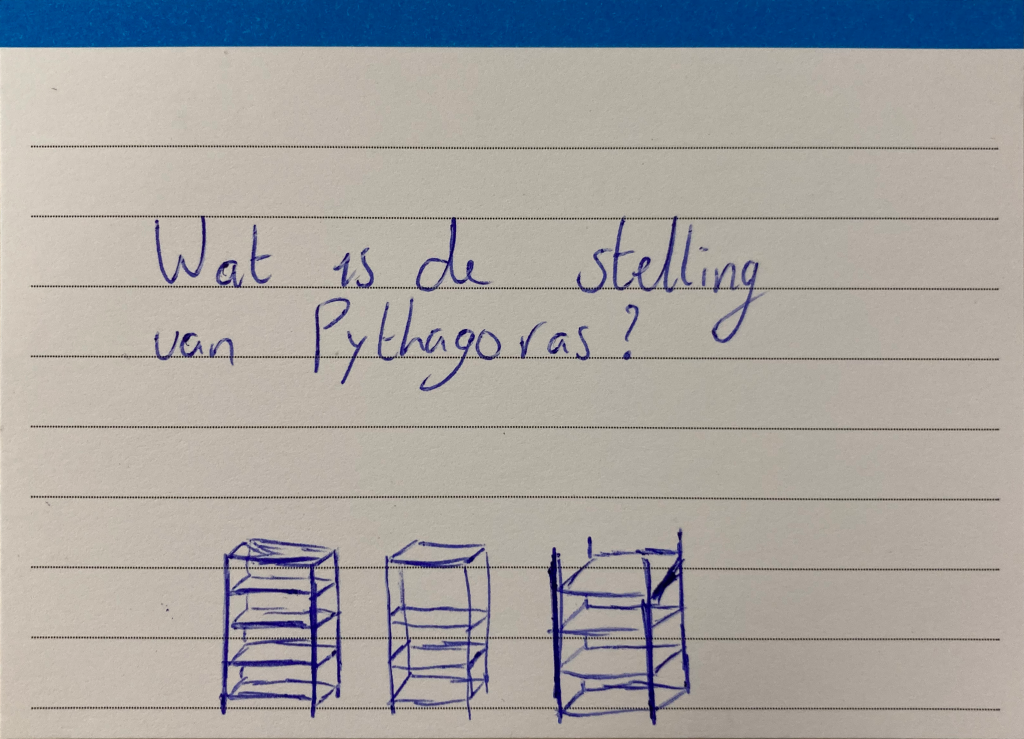 Wat is de stelling
van Pythagoras?